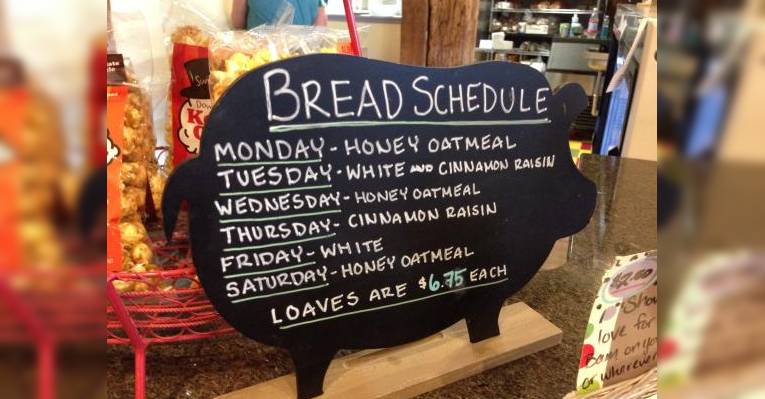 BREAD SCHEDULE
MONDAY - HONEY OATMEAL
TUESDAY - WHITE AND CINNAMON RAISIN
WEDNESDAY - HONEY OATMEAL
THURSDAY - CINNAMON RAISIN
FRIDAY - WHITE
SATURDAY - HONEY OATMEAL
LOAVES ARE $6.75 EACH
Show
love for
or wherever